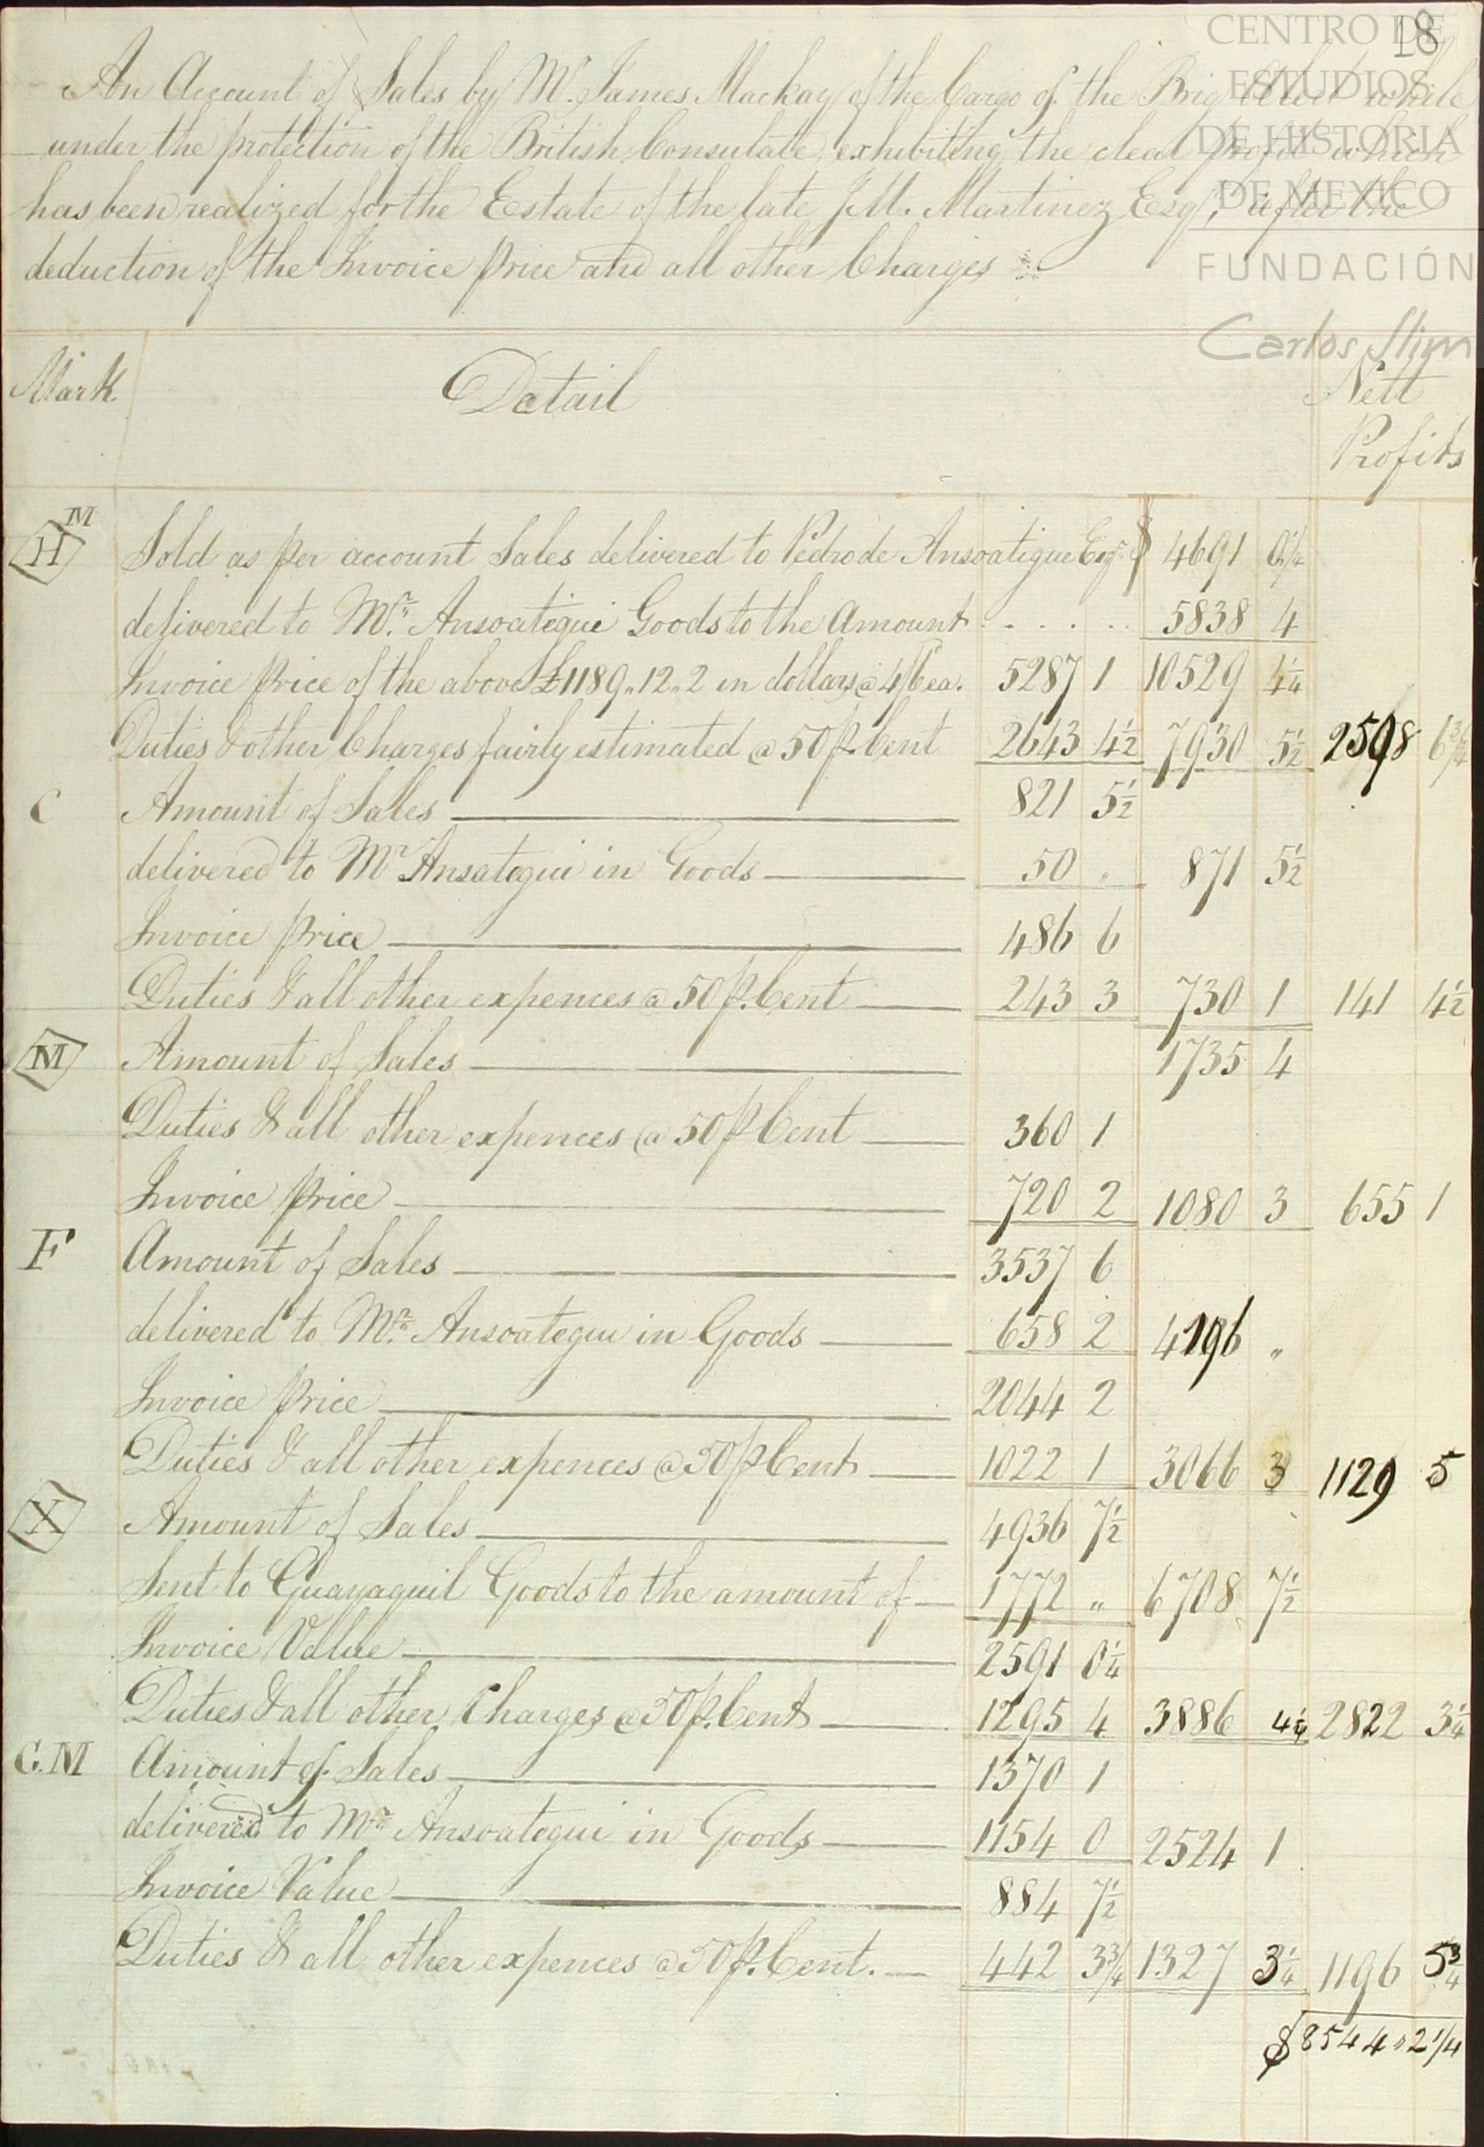 18
CENTRO DE
ESTUDIOS
DE HISTORIA
DE MEXICO
FUNDACIÓN
Carlos Slim
An Account of Sales by Mr. James Mackay of the Cargo of the Brig while
under the protection of the British Consulate, exhibiting the clear profit which
has been realized for the Estate of the late J.M. Martinez Esqr, after the
deduction of the Invoice price and all other Charges
Mark Detail Nett Profits
H M Sold as per account Sales delivered to Pedro de Ansoatigue Esqr $ 4691 0 1/4
delivered to Mr. Ansoategui Goods to the Amount . . . . 5838 4
Invoice price of the above £1189,,12,,2 in dollars @ 4/6 ea. 5287 1 10529 4 1/4
Duties & other Charges fairly estimated @ 50 p Cent 2643 4 1/2 7930 5 1/2 2598 6 3/4
C Amount of Sales 821 5 1/2
delivered to Mr Ansategui in Goods 50 " 871 5 1/2
Invoice price 486 6
Duties & all other expences @ 50 p. Cent 243 3 730 1 141 4 1/2
M Amount of Sales 1735 4
Duties & all other expences @ 50 p Cent 360 1
Invoice price 720 2 1080 3 655 1
F Amount of Sales 3537 6
delivered to Mr. Ansoategui in Goods 658 2 4196 "
Invoice price 2044 2
Duties & all other expences @ 50 p Cent 1022 1 3066 3 1129 5
X Amount of Sales 4936 7 1/2
Sent to Guayaquil Goods to the amount of 1772 " 6708 7 1/2
Invoice Value 2591 0 1/4
Duties & all other Charges @ 50 p. Cent 1295 4 3886 4 1/4 2822 3 1/4
G.M Amount of Sales 1370 1
delivered to Mr Ansoategui in Goods 1154 0 2524 1
Invoice Value 884 7 1/2
Duties & all other expences @ 50 p. Cent. 442 3 3/4 1327 3 1/4 1196 5 3/4
$ 8544 " 2 1/4